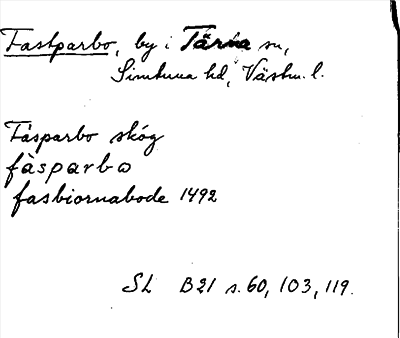 Fastparbo, by i Tärna sn,
Simtuna hd, Västm. l.
Fásparbo skóg
fàsparbo
fasbiornabode 1492
SL B21 s. 60, 103, 119.